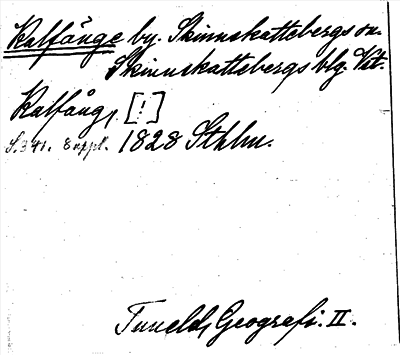 Kalfänge by. Skinnskattebergs sn.
Skinnskattebergs blg. Vst.
Kalfång, [!]
S. 341. 8 uppl. 1828 Sthlm.
Tuneld, Geografi. II.